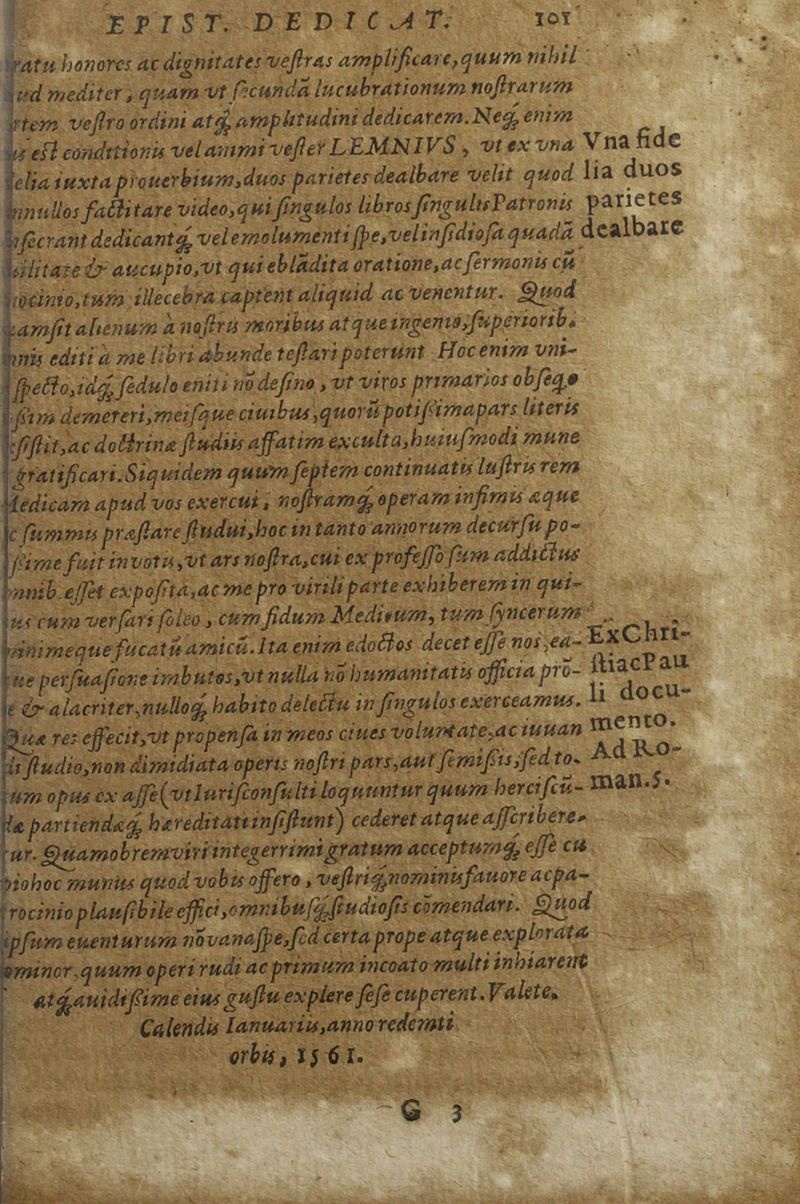 EPIST. DEDICAT. 101
ratu honores ac dignitates veſtras amplificare, quum nihil
ud mediter, quam vt ſecundã lucubrationum noſtrarum
rtem veſtro ordini atq́; amplitudini dedicarem. Neq́; enim
is eſt conditionis vel animi veſter LEMNIVS, vt ex vna
elia iuxta prouerbium, duos parietes dealbare velit quod
nnullos factitare video, qui ſingulos libros ſingulis Patronis
nſecrant dedicantq́; vel emolumenti ſpe, vel inſidioſa quadã
bilitate & aucupio, vt qui eblãdita oratione, ac ſermonis cũ
ocinio, tum illecebra captent aliquid ac venentur. Quod
am ſit alienum à noſtris moribus atque ingenio, ſuperiorib.
nnis editi à me libri abunde teſtari poterunt Hoc enim vni-
ſpecto, idq́; ſedulo eniti nõ deſino, vt viros primarios obſeq.
ſim demereri, meiſque ciuibus, quorũ potiſſima pars literis
ſiſtit, ac doctrinæ ſtudiis affatim exculta, huiuſmodi mune
gratificari. Siquidem quum ſeptem continuatis luſtris rem
Medicam apud vos exercui, noſtramq́; operam infimis æque
c ſummis præſtare ſtudui, hoc in tanto annorum decurſu po-
ſſime fuit in votis, vt ars noſtra, cui ex profeſſo ſum addictus
mnib. eſſet expoſita, ac me pro virili parte exhiberem in qui-
us cum verſari ſoleo, cum fidum Medicum, tum ſyncerum
inimeque fucatũ amicũ. Ita enim edoctos decet eſſe nos, ea-
ue perſuaſione imbutos, vt nulla nõ humanitatis officia prō-
e & alacriter, nulloq́; habito delectu in ſingulos exerceamus.
Quæ res effecit, vt propenſa in meos ciues voluntate, ac iuuan
di ſtudio, non dimidiata operis noſtri pars, aut ſemiſſis, ſed to-
tum opus ex aſſe (vt Iuriſconſulti loquuntur quum herciſcũ-
dæ partiendæq́; hæreditati inſiſtunt) cederet atque aſſcribere-
tur. Quamobrem viri integerrimi gratum acceptumq́; eſſe cu
pio hoc munus quod vobis offero, veſtriq́; nominis fauore ac pa-
trocinio plauſibile effici, omnibuſq́; ſtudioſis cõmendari. Quod
ipſum euenturum nõ vana ſpe, ſed certa prope atque explorata
ominor, quum operi rudi ac primum incoato multi inhiarent
atq́; auidiſſime eius guſtu explere ſeſe cuperent. Valete.
Calendis Ianuariis, anno redemti
orbis, 1561.
G 3
Vna fide
lia duos
parietes
dealbare
Ex Chri-
ſtiac Pau
li docu-
mento.
Ad Ro-
man. 5.